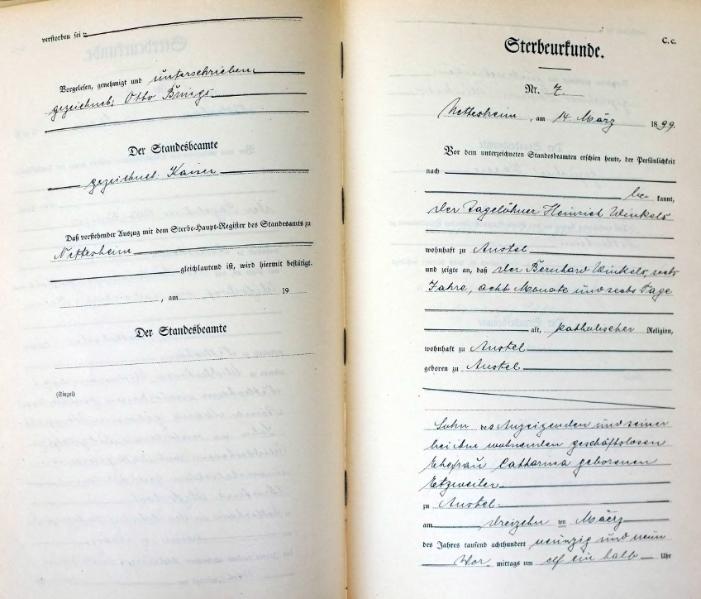 verstorben sei
Vorgelesen, genehmigt und unterschrieben
gezeichnet: Otto
Der Standesbeamte
gezeichnet. Kaiser
Daß vorstehender Auszug mit dem Sterbe-Haupt-Register des Standesamts zu
Nettersheim
gleichlautend ist, wird hiermit bestätigt.
, am 19
Der Standesbeamte
(Siegel)
C. c.
Sterbeurkunde.
Nr. 7
Nettersheim, am 14 März 1899.
Vor dem unterzeichneten Standesbeamten erschien heute, der Persönlichkeit
nach
be kannt,
der Tagelöhner Heinrich Winkels
wohnhaft zu
und zeigte an, daß der Bernhard Winkels, sechs
Jahre, acht Monate und sechs Tage
alt, katholischer Religion,
wohnhaft zu
geboren zu
Sohn des Anzeigenden und seiner
bei ihm wohnenden geschäftslosen
Ehefrau Catharina geborenen
Etzweiler
zu
am dreizehn ten März
des Jahres tausend achthundert neunzig und neun
Vor mittags um elf ein halb Uhr